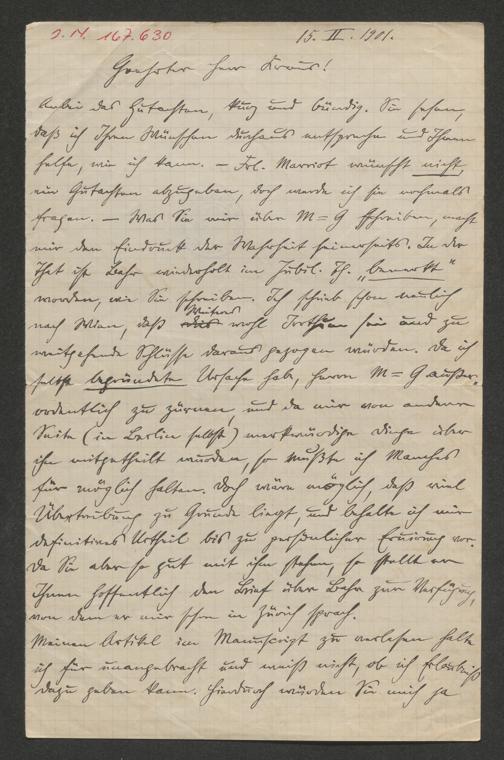 J. N. 167.630
15. II. 1901.
Geehrter Herr Kraus!
Anbei das Gutachten, kurz und bündig. Sie sehen,
daß ich Ihren Wünschen durchaus entspreche und Ihnen
helfe, wie ich kann. – Frl. Marriot wünscht nicht,
ein Gutachten abzugeben, doch werde ich sie nochmals
fragen. – Was Sie mir über M=G schreiben, macht
mir den Eindruck der Wahrheit seinerseits. In der
That ist Bahr wiederholt im Jubil. Th. „bemerkt"
worden, wie Sie schreiben. Ich schrieb schon neulich
nach Wien, daß Weiteres wohl Irrthum sei und zu
weitgehende Schlüsse daraus gezogen würden. Da ich
selbst begründete Ursache hab, Herrn M=G außer-
ordentlich zu zürnen, und da mir von anderer
Seite (in Berlin selbst) merkwürdige Dinge über
ihn mitgetheilt wurden, so mußte ich Manches
für möglich halten. Doch wäre möglich, daß viel
Übertreibung zu Grunde liegt, und behalte ich mir
definitives Urtheil bis zu persönlicher vor.
Da Sie aber so gut mit ihm stehen, so stellt er
Ihnen hoffentlich den Brief über Bahr zur Verfügung,
von dem er mir schon in Zürich sprach.
Meinen Artikel im Manuscript zu verlesen halte
ich für unangebracht und weiß nicht, ob ich Erlaubniß
dazu geben kann. Hierdurch würden Sie mich ja